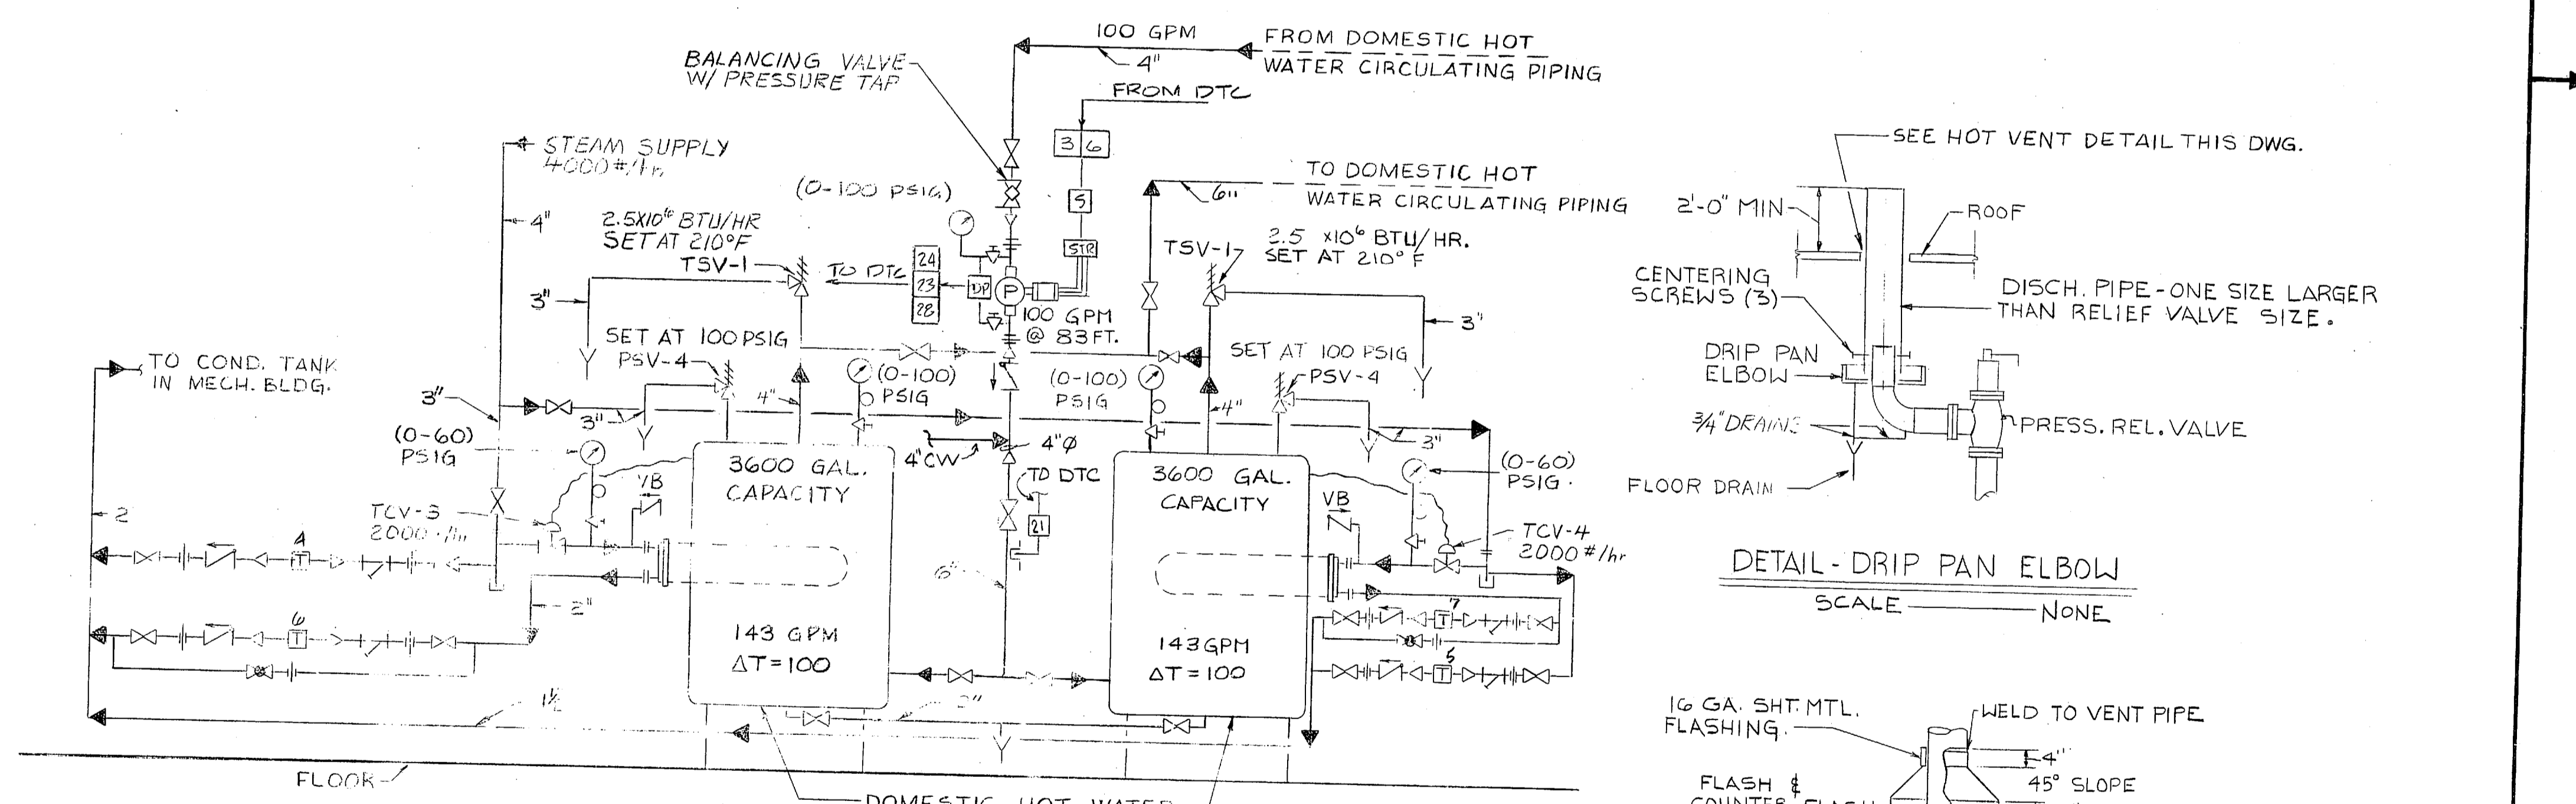 100 GPM
4"
FROM DOMESTIC HOT
WATER CIRCULATING PIPING
BALANCING VALVE
W/ PRESSURE TAP
FROM DTC
3 6
5
STR
STEAM SUPPLY
4000#/hr
4"
(0-100 PSIG)
TO DOMESTIC HOT
WATER CIRCULATING PIPING
6"
2.5X10⁶ BTU/HR
SET AT 210°F
TSV-1
TO DTC
24
23
28
DP
P
100 GPM
@ 83FT.
TSV-1
2.5 X10⁶ BTU/HR.
SET AT 210°F
3"
3"
SET AT 100 PSIG
PSV-4
SET AT 100 PSIG
PSV-4
TO COND. TANK
IN MECH. BLDG.
3"
3"
4"
(0-100)
PSIG
(0-100)
PSIG
4"
3"
(0-60)
PSIG
4"CW
4"Ø
TO DTC
21
(0-60)
PSIG.
VB
VB
3600 GAL.
CAPACITY
3600 GAL.
CAPACITY
2
TCV-3
2000#/hr
TCV-4
2000#/hr
4
T
6
T
2"
6"
7
T
5
T
143 GPM
ΔT=100
143GPM
ΔT=100
1½
FLOOR
DOMESTIC HOT WATER
SEE HOT VENT DETAIL THIS DWG.
2'-0" MIN
ROOF
CENTERING
SCREWS (3)
DISCH. PIPE-ONE SIZE LARGER
THAN RELIEF VALVE SIZE.
DRIP PAN
ELBOW
3/4" DRAINS
PRESS. REL. VALVE
FLOOR DRAIN
DETAIL-DRIP PAN ELBOW
SCALE NONE
16 GA. SHT. MTL.
FLASHING.
WELD TO VENT PIPE
4"
45° SLOPE
FLASH &
COUNTER FLASH